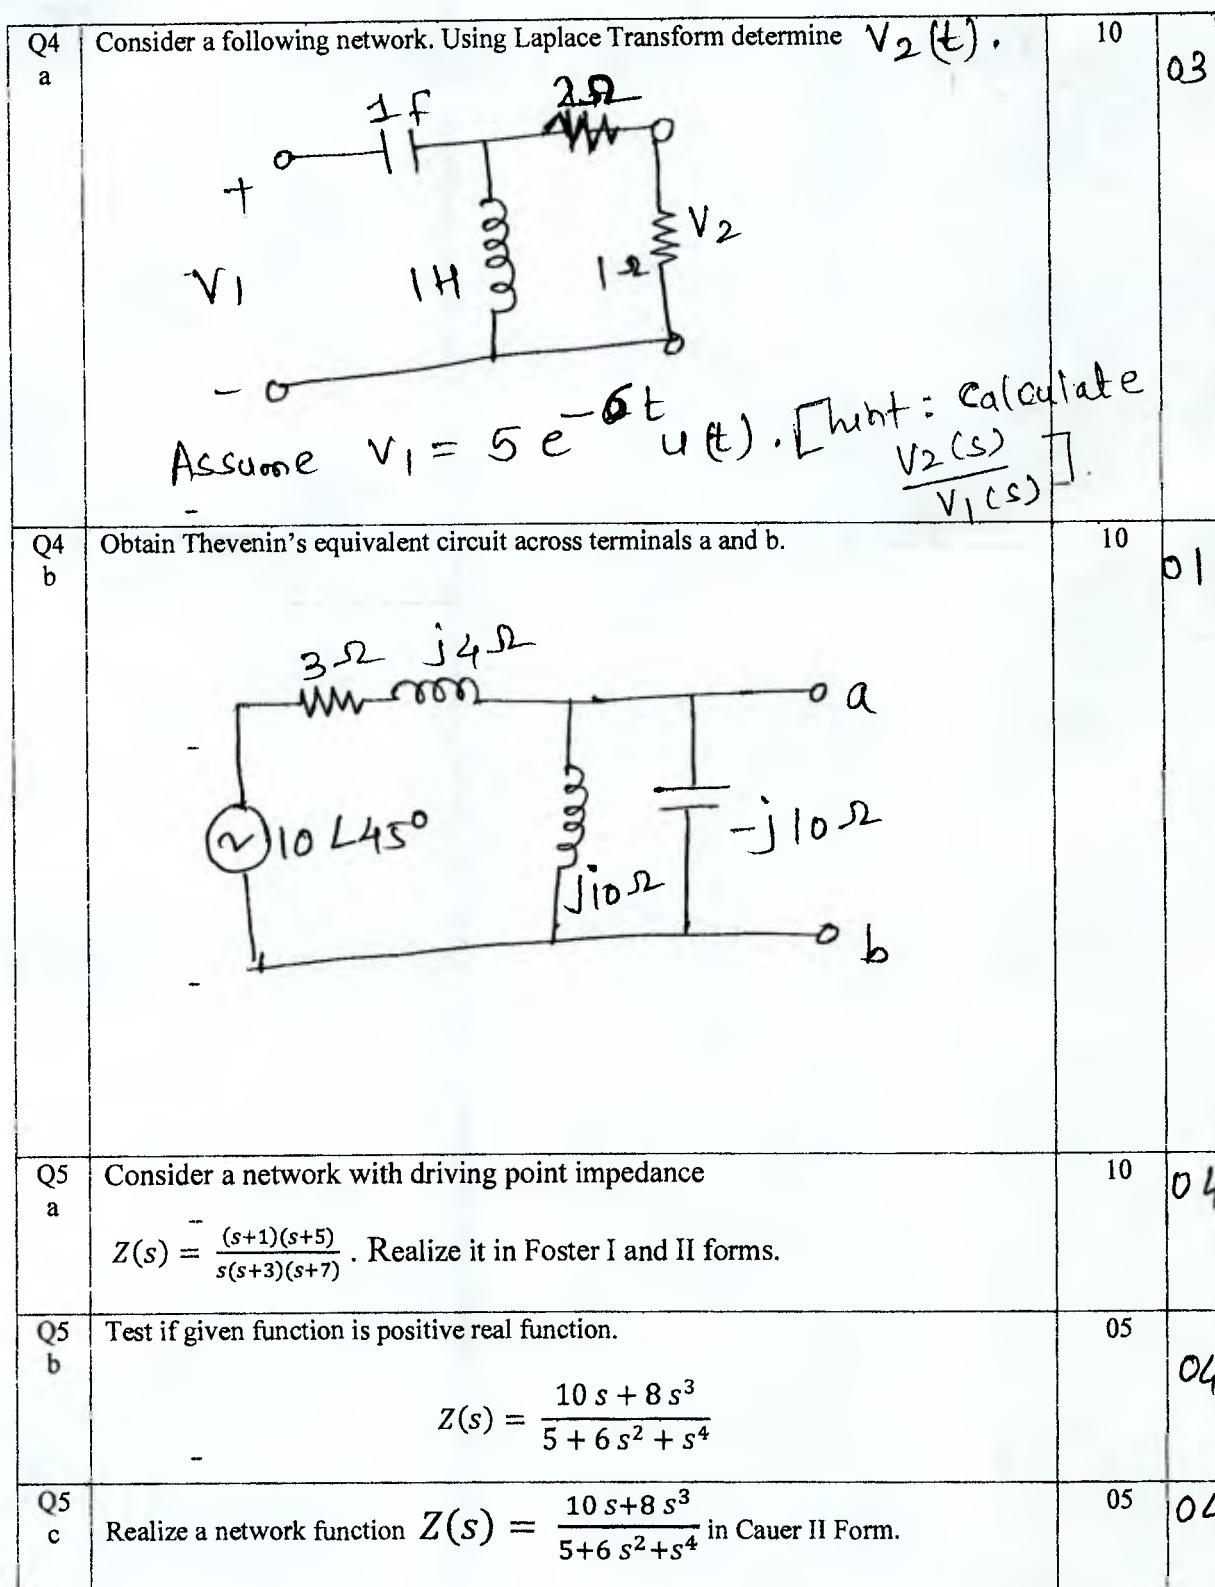 Q4 Consider a following network. Using Laplace Transform determine V2(t). 10
a 03
1f
2Ω
+
V1
1H
1Ω
V2
-
Assume V1 = 5 e^-6t u(t). [hint: Calculate
V2(s)
V1(s)].
Q4 Obtain Thevenin's equivalent circuit across terminals a and b. 10
b 01
3Ω j4Ω
a
10∠45°
j10Ω
-j10Ω
b
Q5 Consider a network with driving point impedance 10
a 04
Z(s) = (s+1)(s+5) / s(s+3)(s+7) . Realize it in Foster I and II forms.
Q5 Test if given function is positive real function. 05
b 04
Z(s) = 10 s + 8 s³ / 5 + 6 s² + s⁴
Q5 05
c Realize a network function Z(s) = 10 s+8 s³ / 5+6 s²+s⁴ in Cauer II Form.